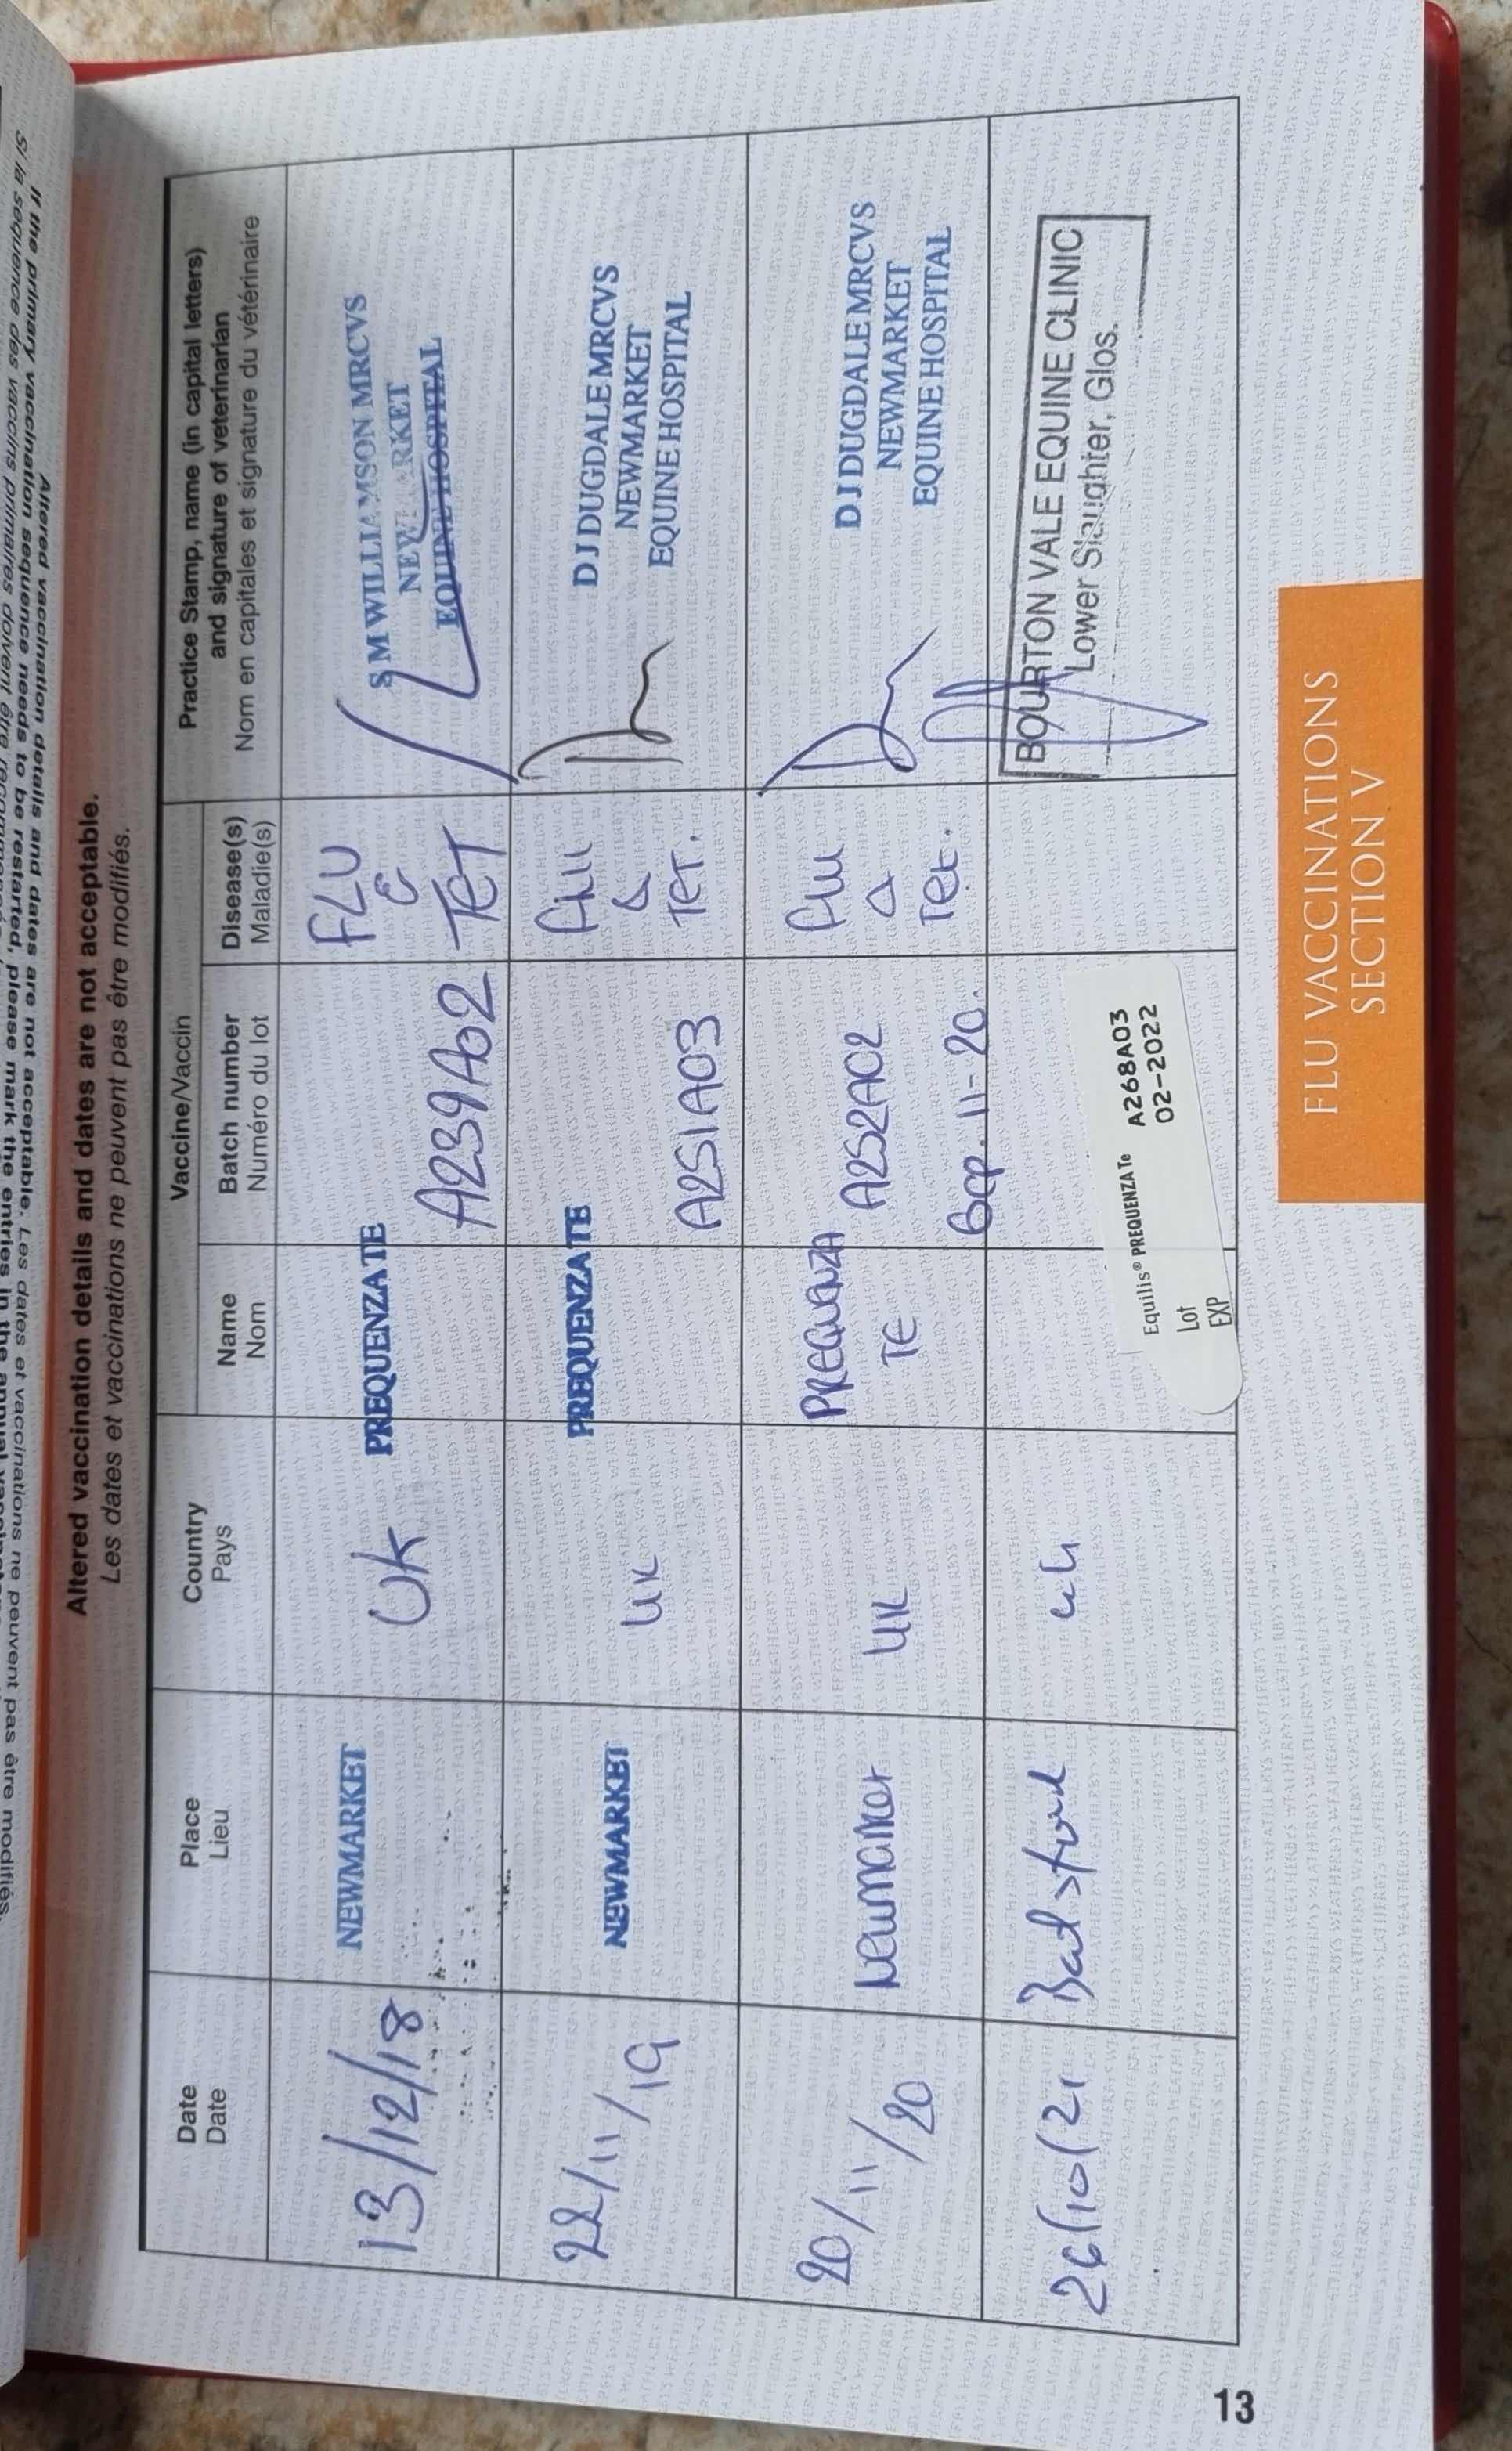 If the primary vaccination sequence needs to be restarted, please mark the entries in the annual
Altered vaccination details and dates are not acceptable. Les dates et vaccinations ne peuvent pas être modifiés.
Si la séquence des vaccins primaires doivent être
Altered vaccination details and dates are not acceptable.
Les dates et vaccinations ne peuvent pas être modifiés.
Date
Date
Place
Lieu
Country
Pays
Vaccine/Vaccin
Name
Nom
Batch number
Numéro du lot
Disease(s)
Maladie(s)
Practice Stamp, name (in capital letters)
and signature of veterinarian
Nom en capitales et signature du vétérinaire
13/12/18
NEWMARKET
UK
PREQUENZA TE
A239A02
FLU
&
TET
S M WILLIAMSON MRCVS
NEWMARKET
EQUINE HOSPITAL
22/11/19
NEWMARKET
UK
PREQUENZA TE
A251A03
Flu
&
TET.
D J DUGDALE MRCVS
NEWMARKET
EQUINE HOSPITAL
20/11/20
Newmarket
UK
PREQUENZA
TE
A252A02
Exp. 11-20.
Flu
&
Tet.
D J DUGDALE MRCVS
NEWMARKET
EQUINE HOSPITAL
26/10/21
uk
Equilis® PREQUENZA Te
Lot A268A03
EXP 02-2022
BOURTON VALE EQUINE CLINIC
Lower Slaughter, Glos.
FLU VACCINATIONS
SECTION V
13